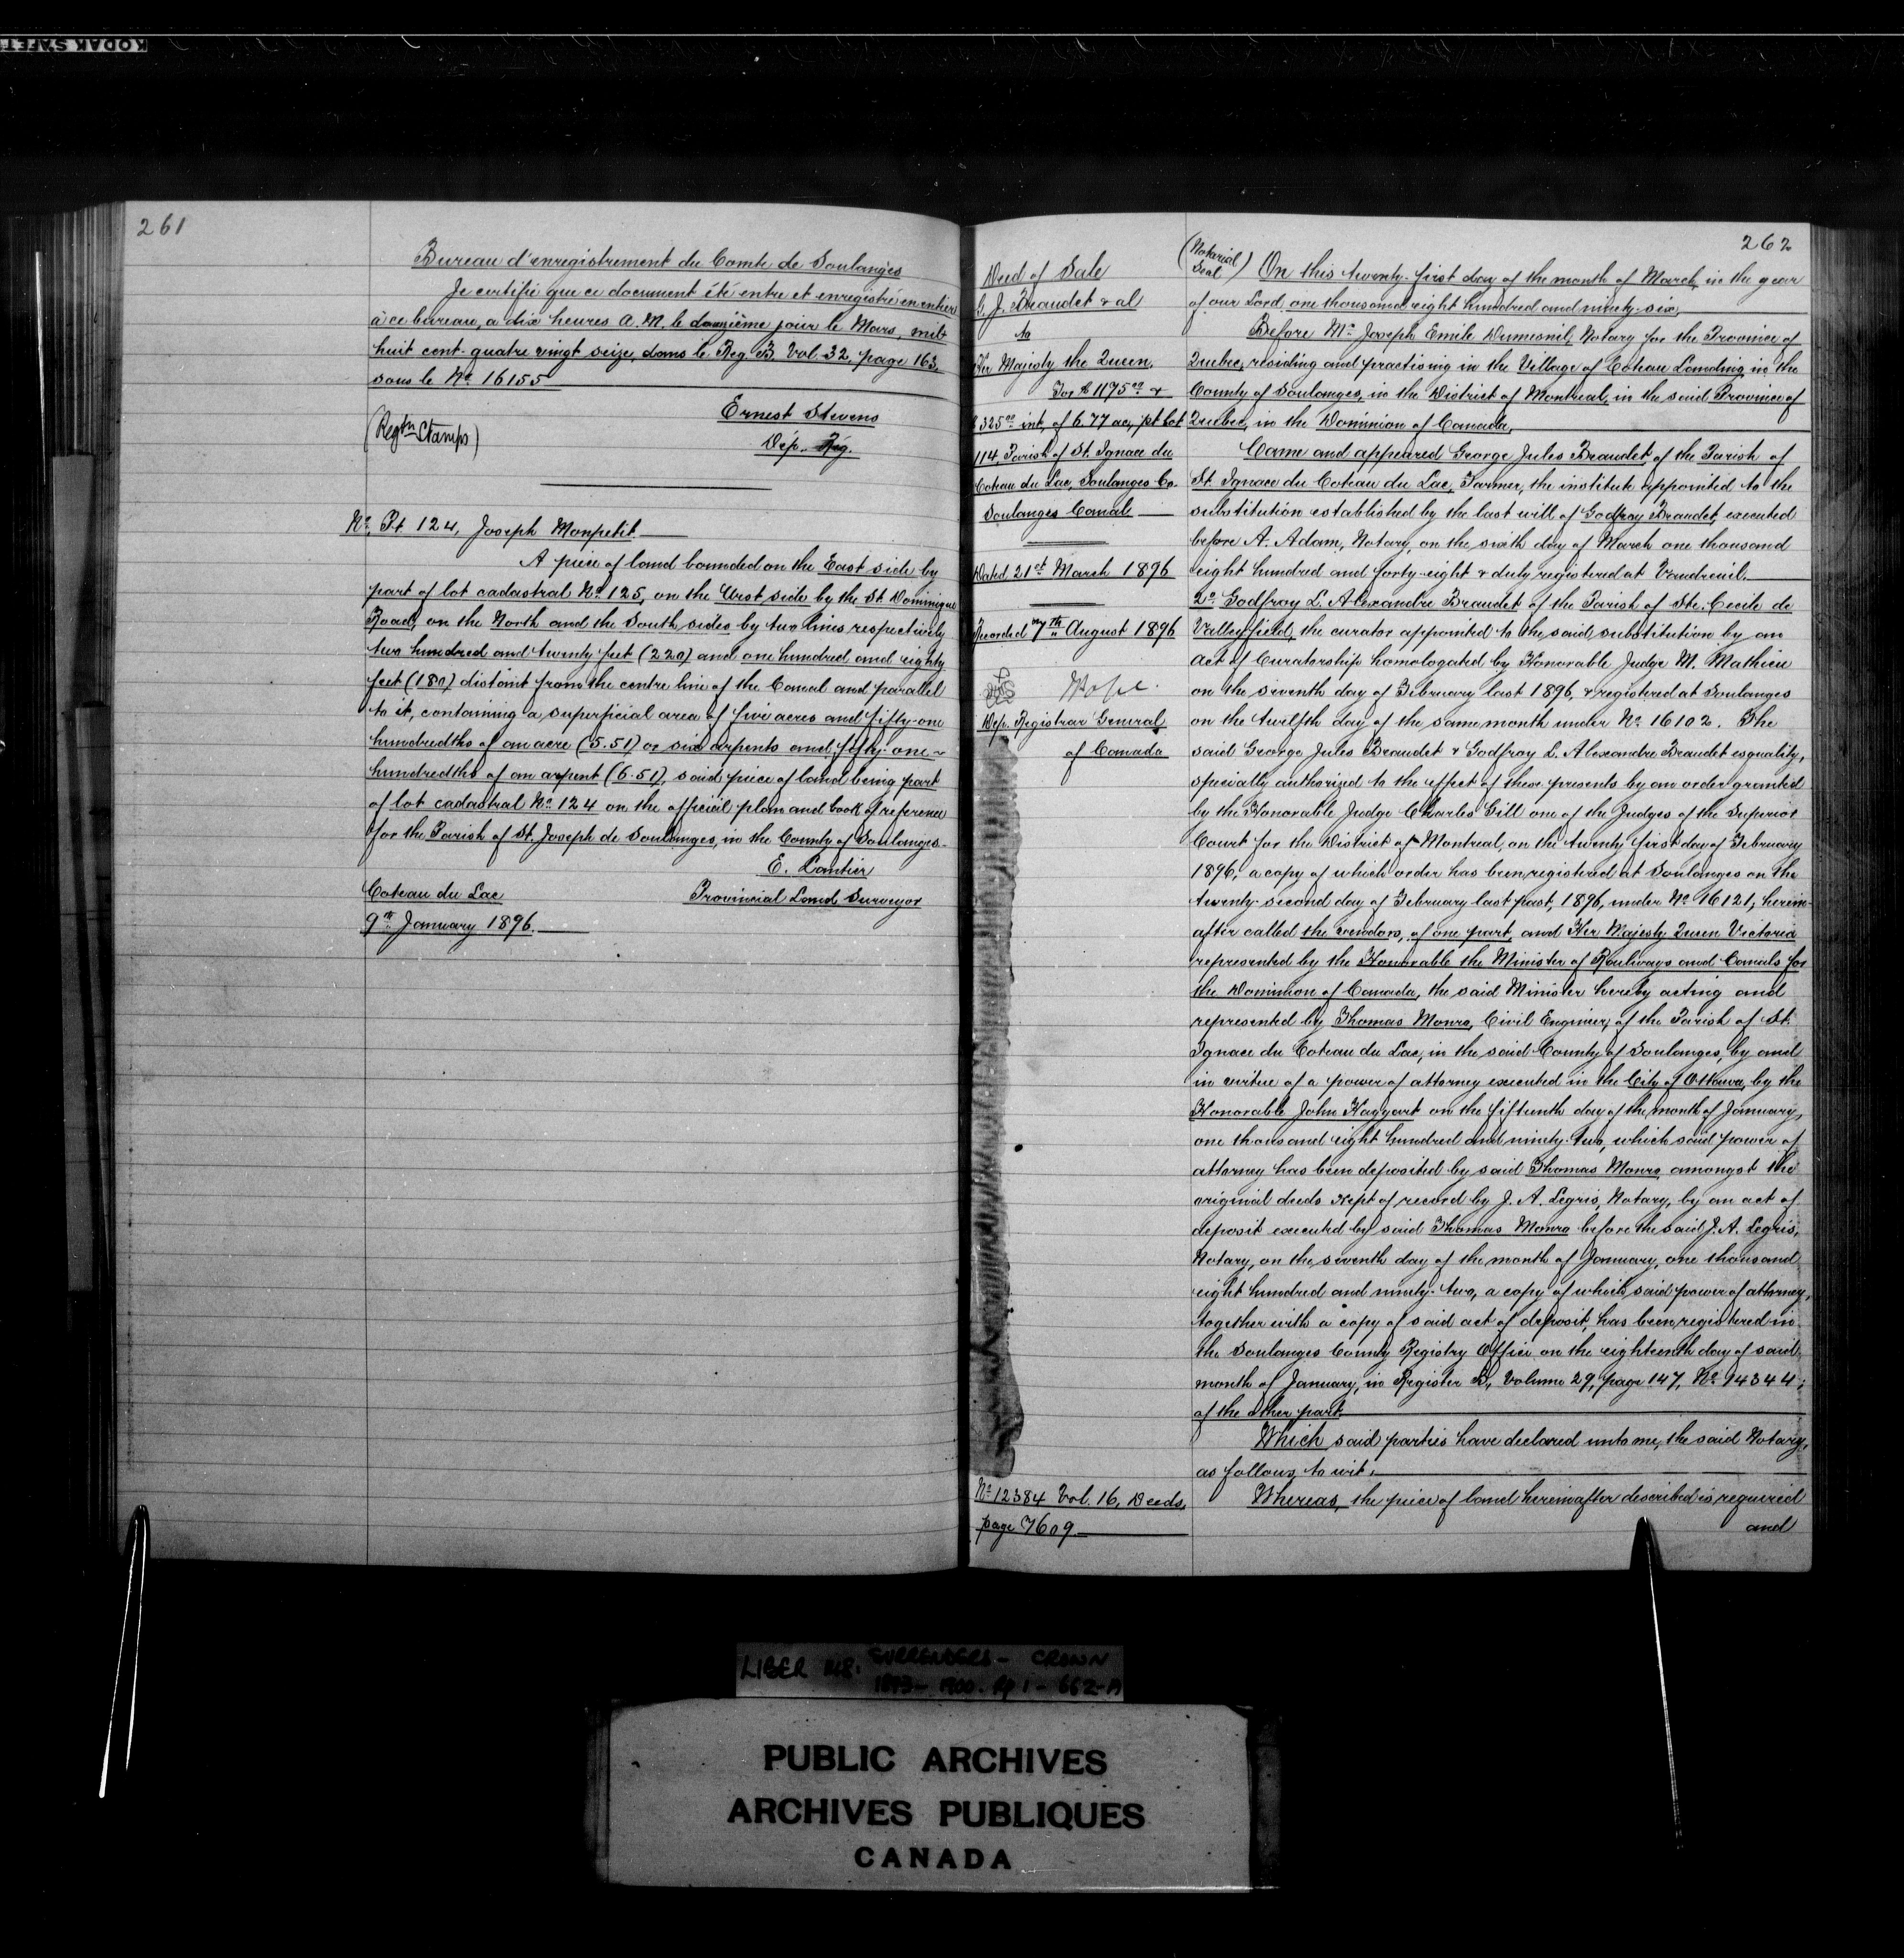 KODAK SAFET
261
Bureau d'enregistrement du Comte de Soulanges
Je certifie que ce document été entre et enregistré en entier
à ce bureau, a dix heures A.M. le douzième jour le Mars, mil
huit cent quatre vingt seize, dans le Reg. B Vol 32, page 163,
sous le No 16155
Ernest Stevens
Dép. Rég.
(Regtn Stamps)
No. Pt 124, Joseph Monpetit
A piece of land bounded on the East side by
part of lot cadastral No 125, on the West side by the St. Dominique
Road, on the North and the South sides by two lines respectively
two hundred and twenty feet (220) and one hundred and eighty
feet (180) distant from the centre line of the Canal and parallel
to it, containing a superficial area of five acres and fifty-one
hundredths of an acre (5.51) or six arpents and fifty-one
hundredths of an arpent (6.51), said piece of land being part
of lot cadastral No 124 on the official plan and book of reference
for the Parish of St. Joseph de Soulanges, in the County of Soulanges.
E. Lantier
Coteau du Lac Provincial Land Surveyor
9th January 1896.
262
Deed of Sale
G. J. Beaudet & al
to
Her Majesty the Queen.
For $1175.00 &
$325.00 int, of 6.77 ac, pt Lot
114, Parish of St. Ignace du
Coteau du Lac, Soulanges Co.
Soulanges Canal
Dated 21st March 1896
Recorded 7th August 1896
Pope
Dep. Registrar General
of Canada
No 12384 Vol. 16, Deeds,
page 7609
(Notarial Seal) On this twenty-first day of the month of March, in the year
of our Lord one thousand eight hundred and ninety-six,
Before Mr Joseph Emile Dumesnil, Notary for the Province of
Quebec, residing and practising in the Village of Coteau Landing, in the
County of Soulanges, in the District of Montreal, in the said Province of
Quebec, in the Dominion of Canada,
Came and appeared George Jules Beaudet of the Parish of
St. Ignace du Coteau du Lac, Farmer, the institute appointed to the
substitution established by the last will of Godfroy Beaudet, executed
before A. Adam, Notary, on the sixth day of March one thousand
eight hundred and forty-eight & duly registered at Vaudreuil.
2o Godfroy L. Alexandre Beaudet of the Parish of Ste. Cecile de
Valleyfield, the curator appointed to the said substitution by an
act of Curatorship homologated by Honorable Judge M. Mathieu
on the seventh day of February last 1896, & registered at Soulanges
on the twelfth day of the same month under No 16102. The
said George Jules Beaudet & Godfroy L. Alexandre Beaudet esquality,
specially authorized to the effect of these presents by an order granted
by the Honorable Judge Charles Gill one of the Judges of the Superior
Court for the District of Montreal, on the twenty first day of February
1896, a copy of which order has been registered at Soulanges on the
twenty-second day of February last past, 1896, under No 16121, herein-
after called the vendors, of one part, and Her Majesty Queen Victoria
represented by the Honorable the Minister of Railways and Canals for
the Dominion of Canada, the said Minister hereby acting and
represented by Thomas Monro, Civil Engineer, of the Parish of St.
Ignace du Coteau du Lac, in the said County of Soulanges, by and
in virtue of a power of attorney executed in the City of Ottawa, by the
Honorable John Haggart on the fifteenth day of the month of January,
one thousand eight hundred and ninety-two, which said power of
attorney has been deposited by said Thomas Monro amongst the
original deeds kept of record by J. A. Legris, Notary, by an act of
deposit executed by said Thomas Monro before the said J. A. Legris,
Notary, on the seventh day of the month of January, one thousand
eight hundred and ninety-two, a copy of which said power of attorney,
together with a copy of said act of deposit, has been registered in
the Soulanges County Registry Office on the eighteenth day of said
month of January, in Register B, Volume 29, page 147, No 14344;
of the other part.
Which said parties have declared unto me, the said Notary,
as follows, to wit:
Whereas, the piece of land hereinafter described is required
and
LIBER 148. SURRENDERS - CROWN
1893 - 1900. Pg 1 - 662-A
PUBLIC ARCHIVES
ARCHIVES PUBLIQUES
CANADA